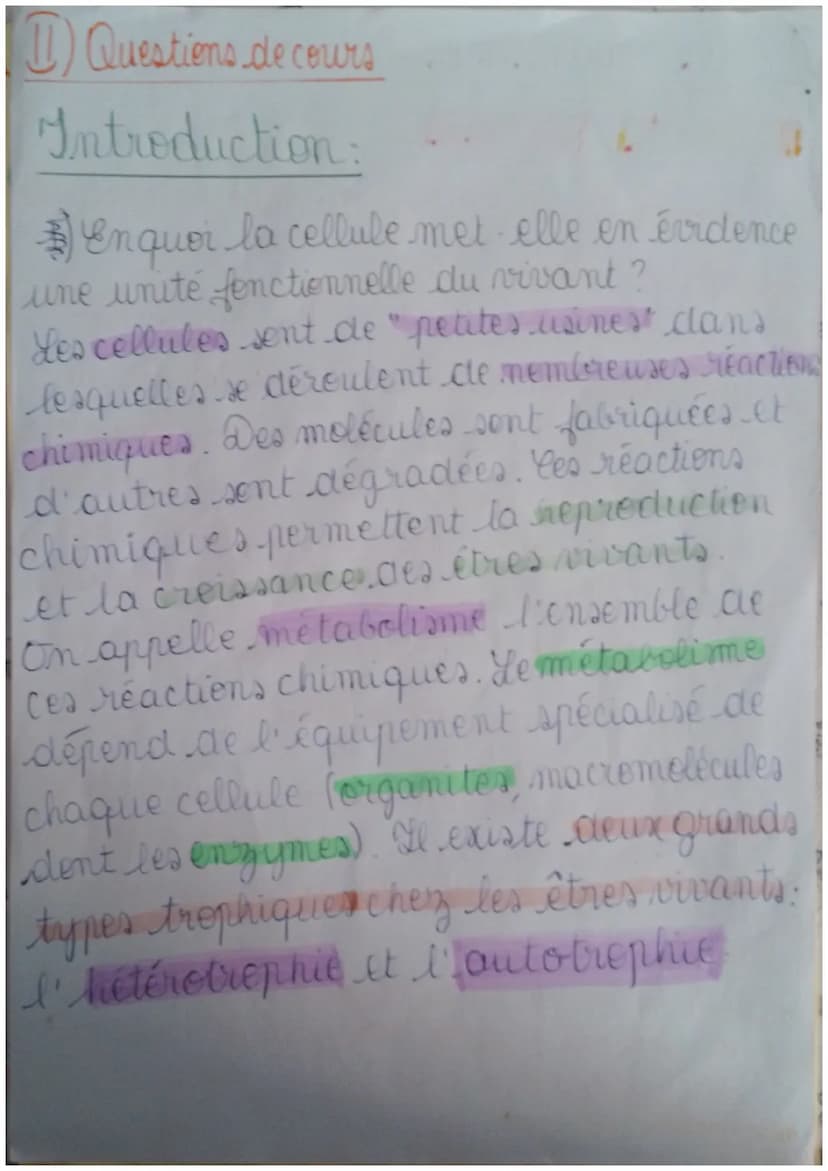 II) Questions de cours
Introduction:
En quoi la cellule met-elle en évidence
une unité fonctionnelle du vivant ?
Les cellules sont de "petites usines" dans
lesquelles se déroulent de nombreuses réactions
chimiques. Des molécules sont fabriquées et
d'autres sont dégradées. Ces réactions
chimiques permettent la reproduction
et la croissance des êtres vivants.
On appelle métabolisme l'ensemble de
ces réactions chimiques. Le métabolime
dépend de l'équipement spécialisé de
chaque cellule (organites, macromolécules
dont les enzymes). Il existe deux grands
types trophiques chez les êtres vivants:
l'hétérotrophie et l'autotrophie.